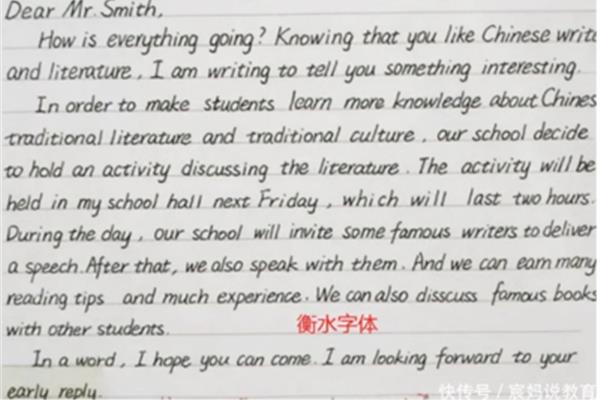 Dear Mr. Smith,
How is everything going? Knowing that you like Chinese write
and literature, I am writing to tell you something interesting.
In order to make students learn more knowledge about Chines
traditional literature and traditional culture, our school decide
to hold an activity discussing the literature. The activity will be
held in my school hall next Friday, which will last two hours.
During the day, our school will invite some famous writers to deliver
a speech. After that, we also speak with them. And we can earn many
reading tips and much experience. We can also disscuss famous books
with other students.
衡水字体
In a word, I hope you can come. I am looking forward to your
early reply.
快传号/宸妈说教育